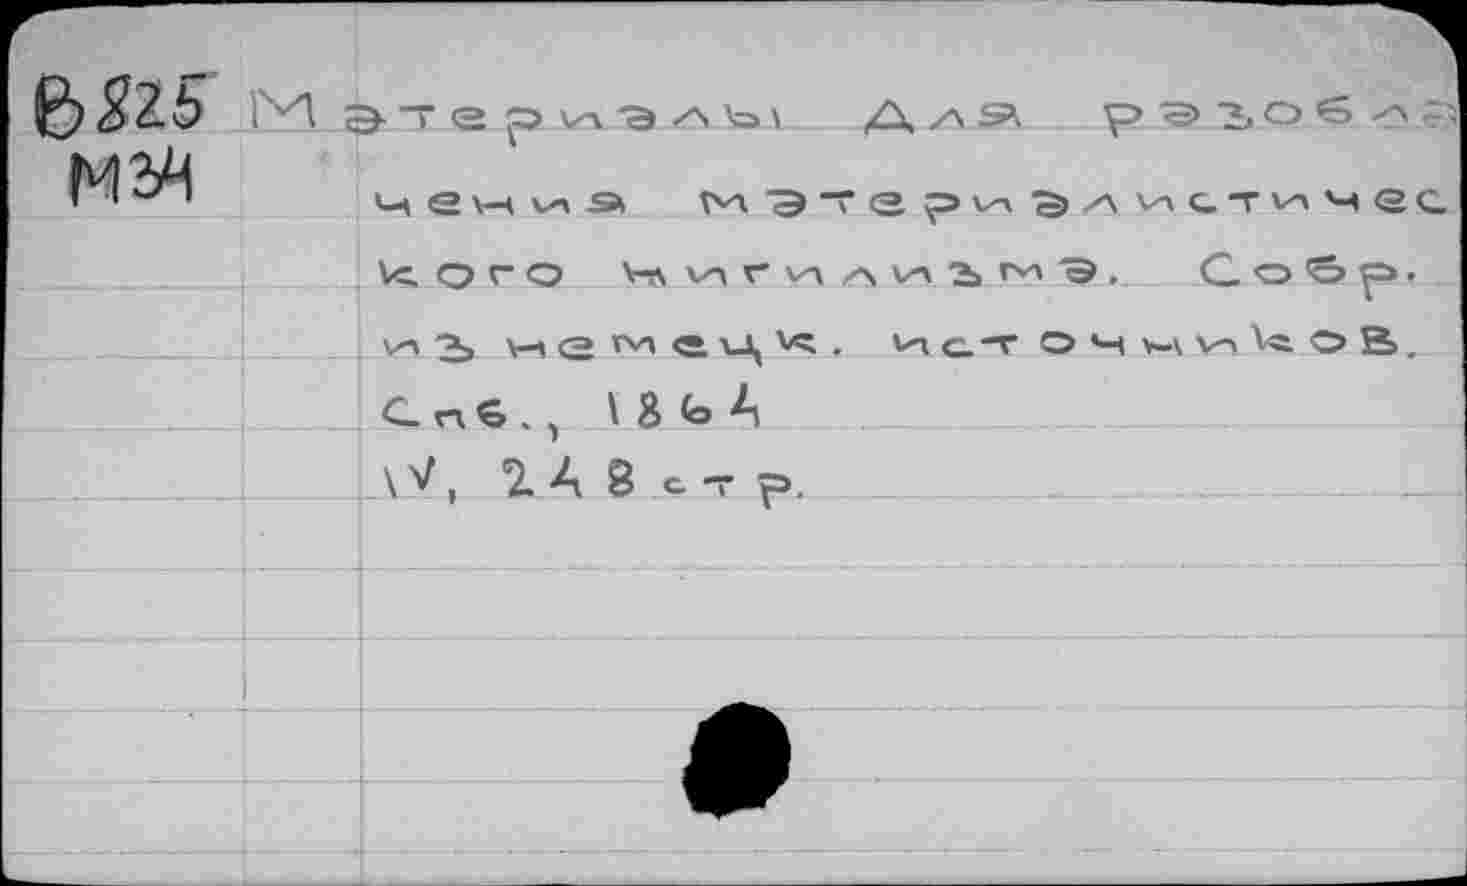 B825 Материалы Для разобла
М34 чения материалистичес
кого нигилизма. Собр.
из немецк. источников.
Спб., 1864
IV, 248 стр.